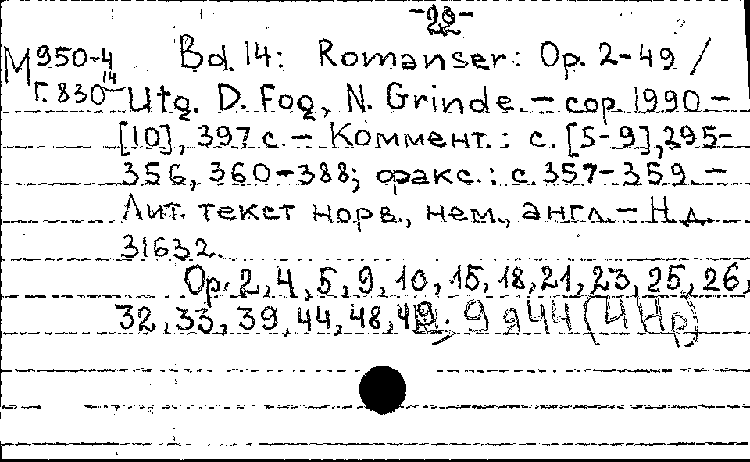 -20-
М 950-4 Bd. 14: Romanser: Op. 2-49 /
Г. 830 14 Utg. D. Fog, N. Grinde. – cop. 1990 –
[10], 397 с. – Коммент.: с. [5-9], 295-
356, 360-388; факс.: с. 357-359. –
Лит. текст норв., нем., англ. – Н.д.
31632.
Op. 2, 4, 5, 9, 10, 15, 18, 21, 23, 25, 26,
32, 33, 39, 44, 48, 49. 9 944 (4Нр)